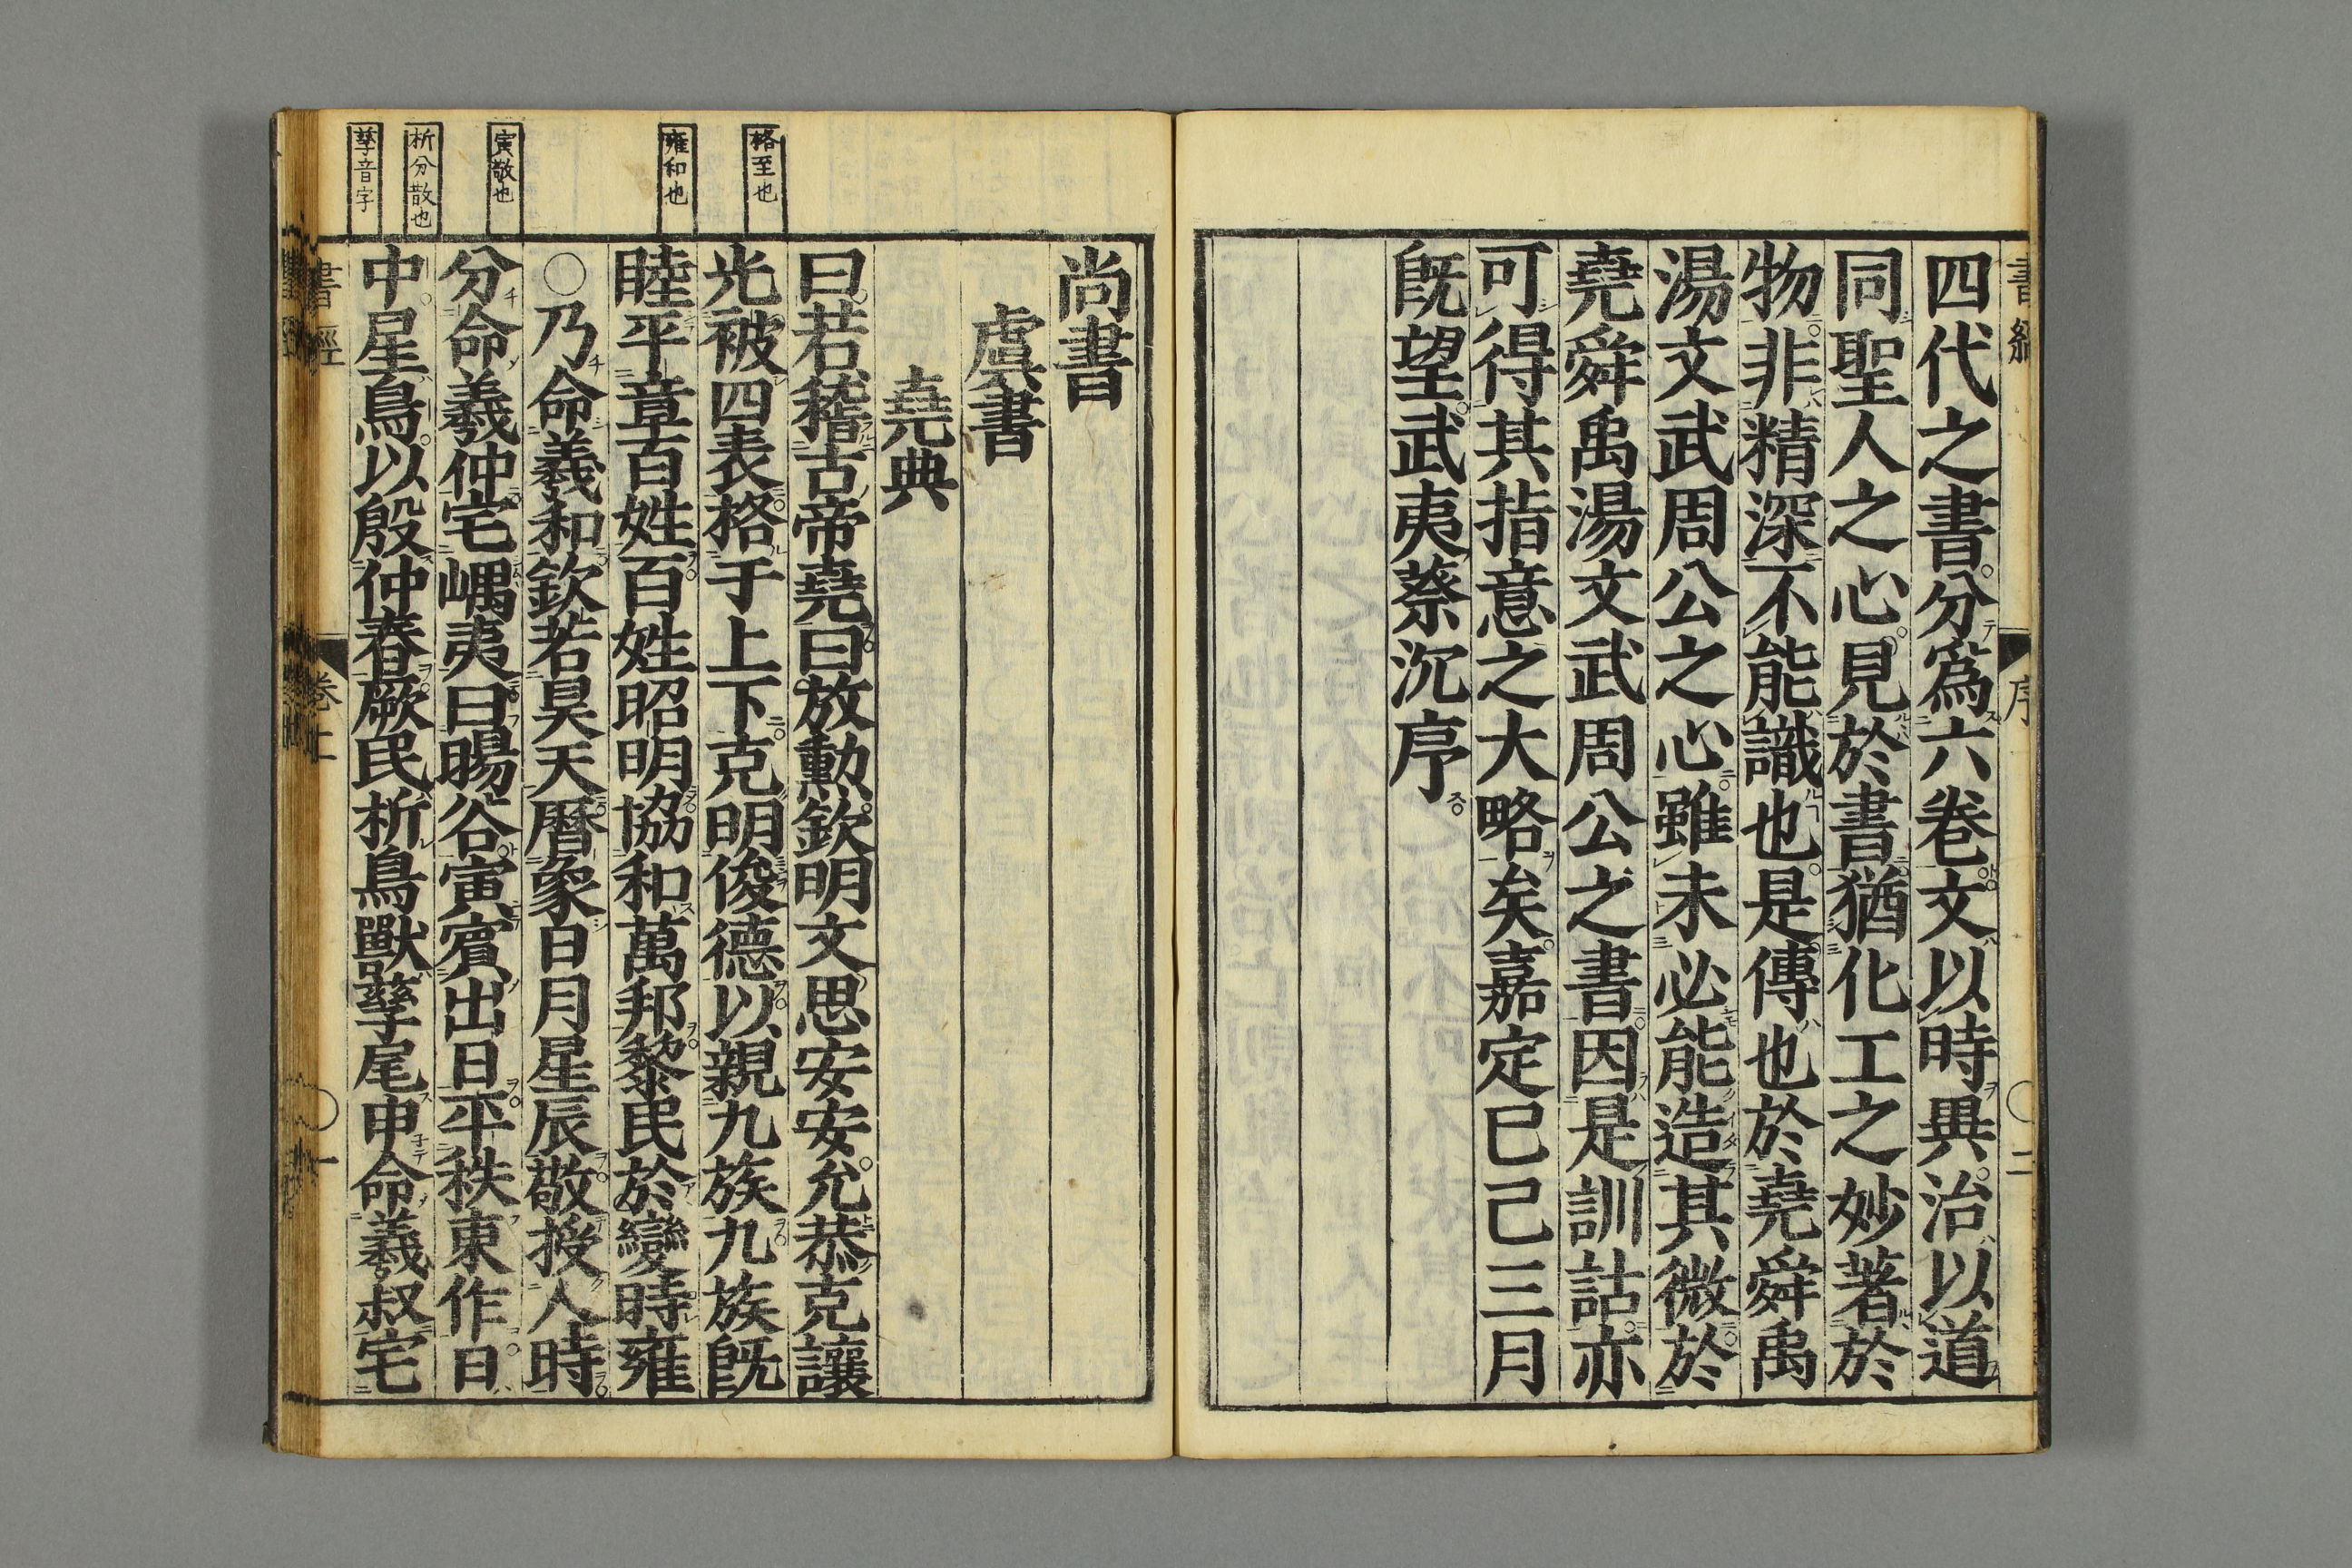 書經 序 ○二
四代之書分爲六卷文以時異治以道
同聖人之心見於書猶化工之妙著於
物非精深不能識也是傳也於堯舜禹
湯文武周公之心雖未必能造其微於
堯舜禹湯文武周公之書因是訓詁亦
可得其指意之大略矣嘉定巳己三月
旣望武夷蔡沉序
尚書
虞書
堯典
曰若稽古帝堯曰放勲欽明文思安安允恭克讓
格至也
光被四表格于上下克明俊德以親九族九族旣
雍和也
睦平章百姓百姓昭明協和萬邦黎民於變時雍
○乃命羲和欽若昊天曆象日月星辰敬授人時
寅敬也
分命羲仲宅嵎夷曰暘谷寅賓出日平秩東作日
析分散也
孳音字
中星鳥以殷仲春厥民析鳥獸孳尾申命羲叔宅
書經 卷上 ○一